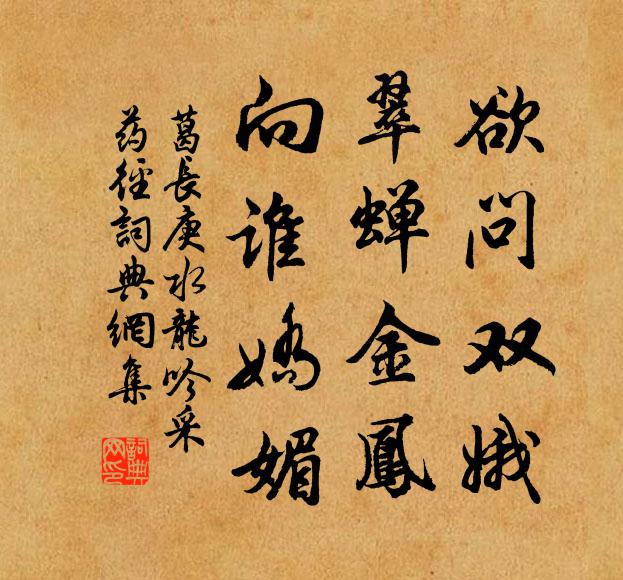 欲问双娥
翠蝉金鳳
向谁嬌媚
葛長庚水龍吟采
药徑詞典網集
詞典网印